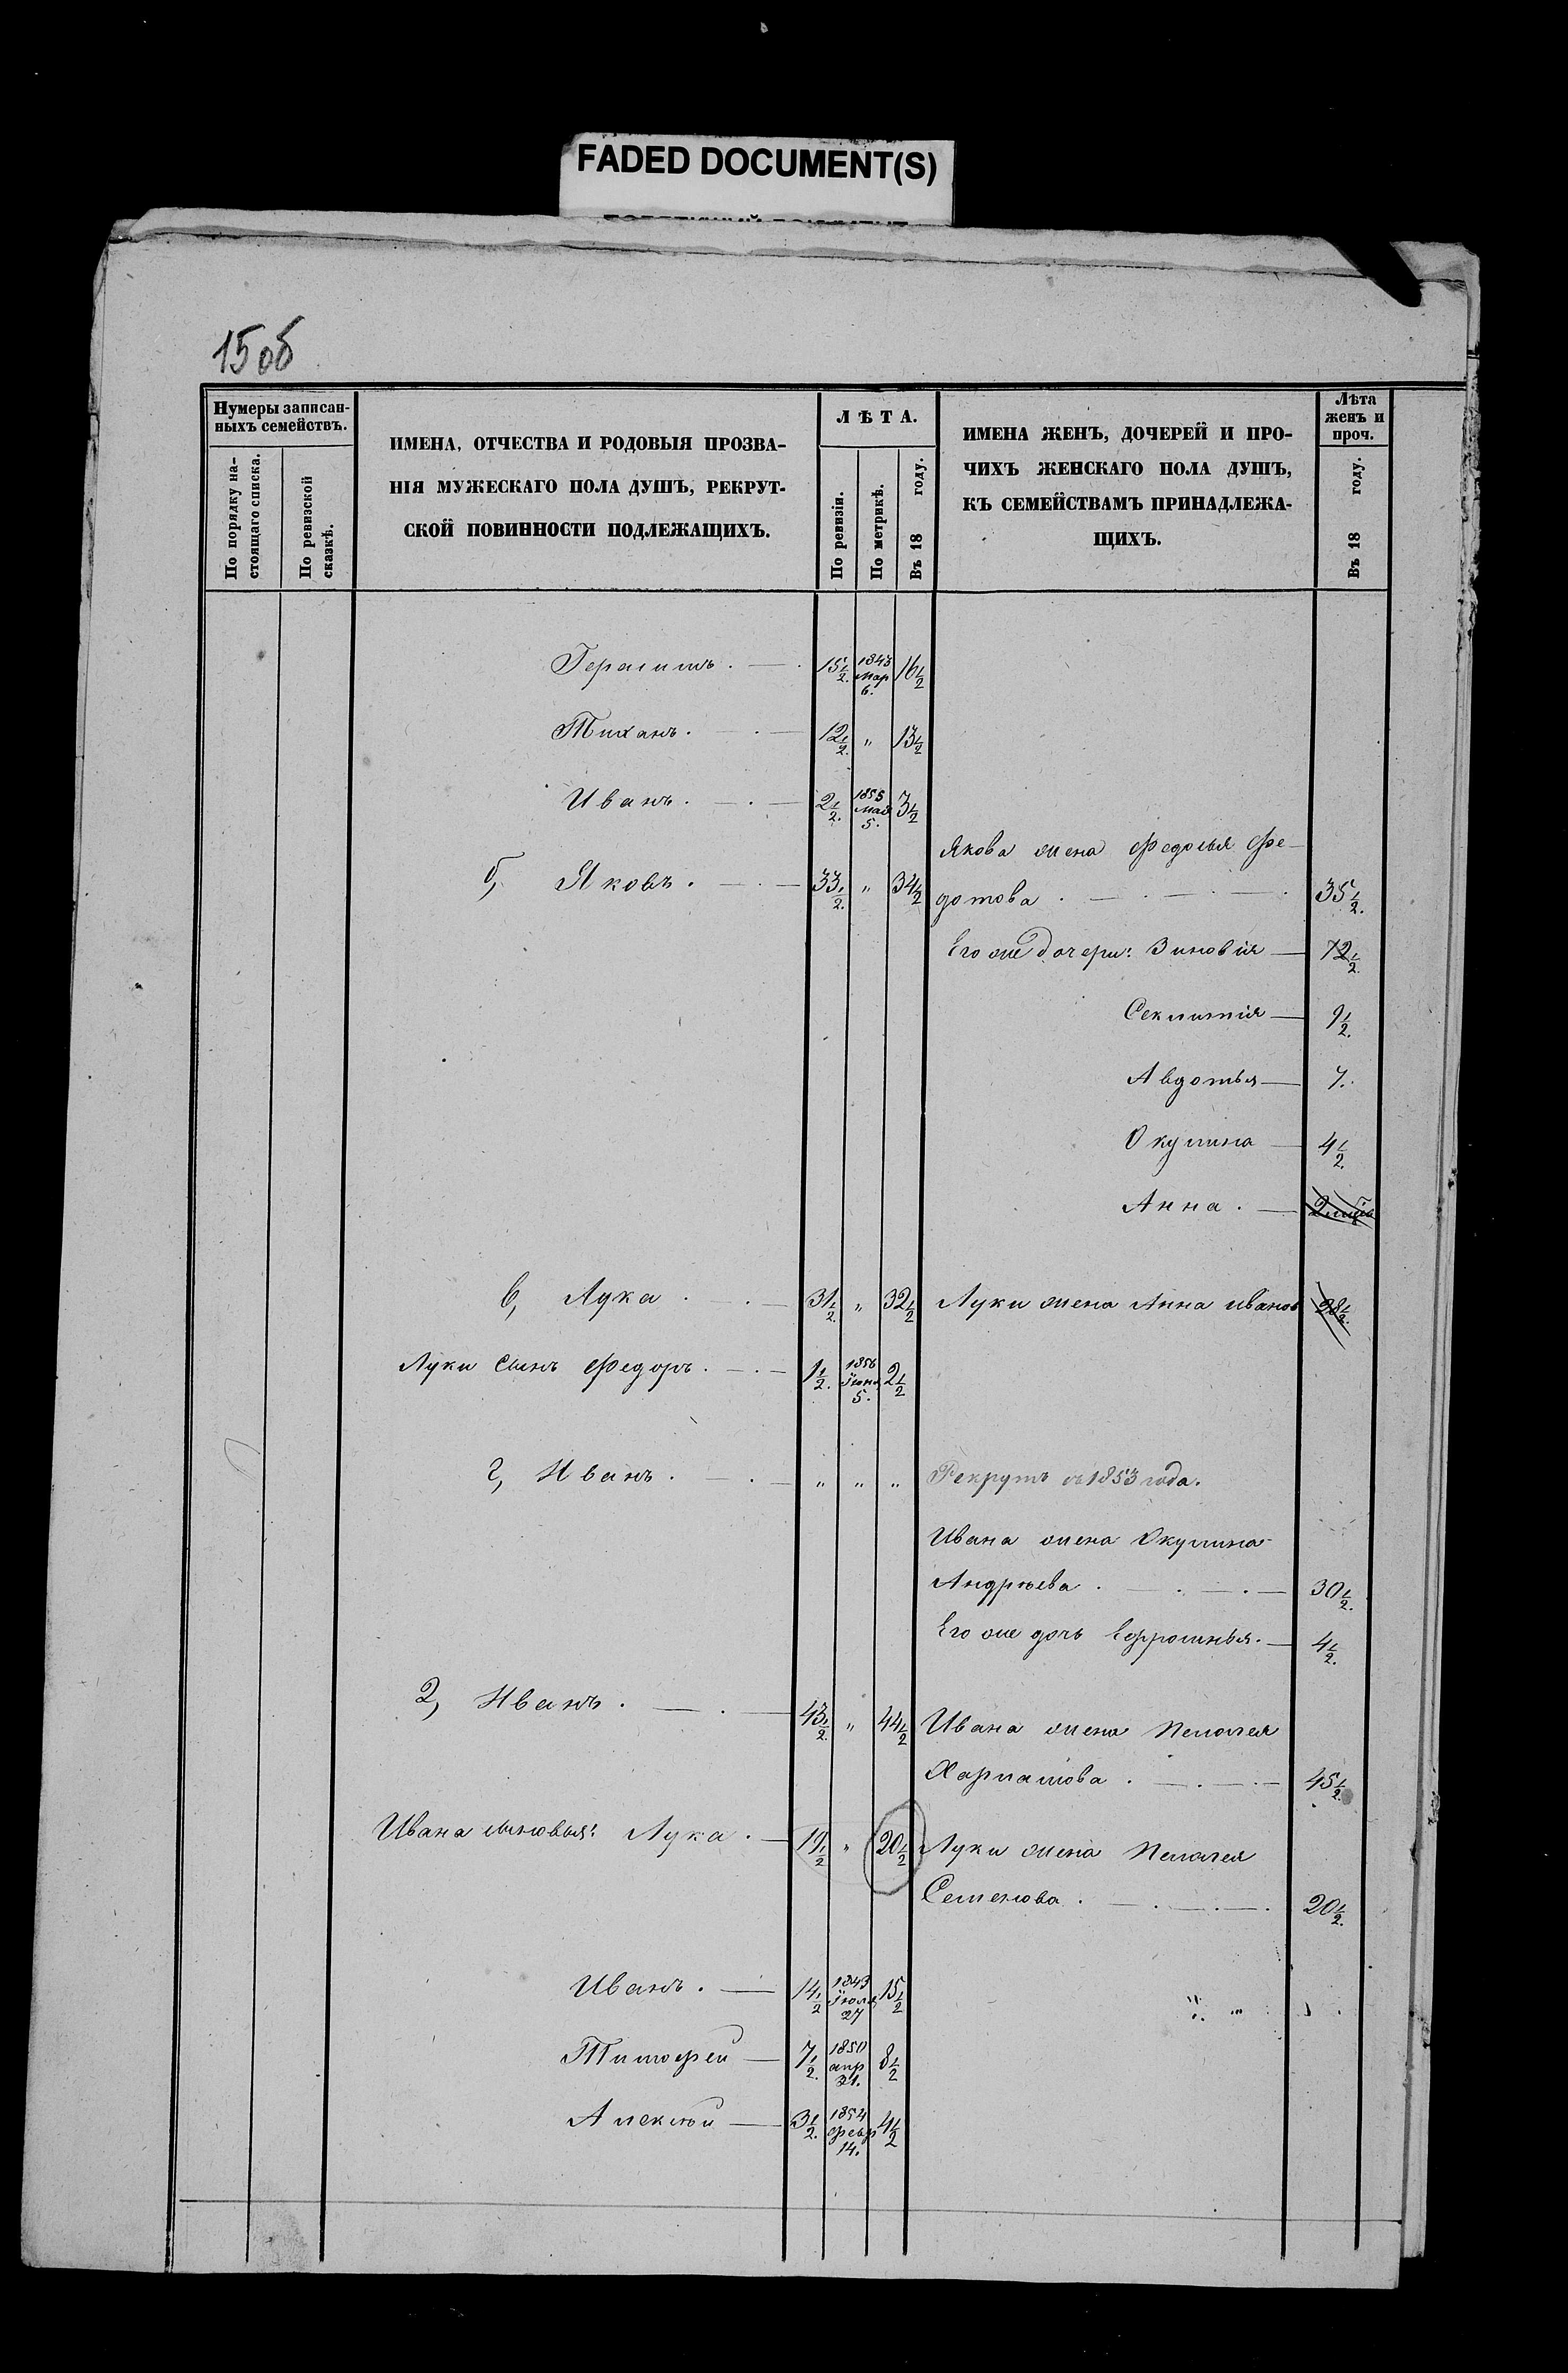 FADED DOCUMENT(S)
15 об
Нумеры записан-
ныхъ семействъ.
По порядку на-
стоящаго списка.
По ревизской
сказкѣ.
ИМЕНА, ОТЧЕСТВА И РОДОВЫЯ ПРОЗВА-
НІЯ МУЖЕСКАГО ПОЛА ДУШЪ, РЕКРУТ-
СКОЙ ПОВИННОСТИ ПОДЛЕЖАЩИХЪ.
ЛѢТА.
По ревизіи.
По метрикѣ.
Въ 18 году.
ИМЕНА ЖЕНЪ, ДОЧЕРЕЙ И ПРО-
ЧИХЪ ЖЕНСКАГО ПОЛА ДУШЪ,
КЪ СЕМЕЙСТВАМЪ ПРИНАДЛЕЖА-
ЩИХЪ.
Лѣта
женъ и
проч.
Въ 18 году.
Герасимъ. — . 15 1/2. 1843 Мар 6. 16 1/2
Тиханъ. — . — 12 1/2. " 13 1/2
Иванъ. — . — 2 1/2. 1855 Мая 5. 3 1/2
Якова жена Федосья Фе-
б, Яковъ. — . — 33 1/2. " 34 1/2 дотова . — . — . — . 35 1/2.
Его же дочери: Зиновія — 12 1/2.
Секлитія — 9 1/2.
Авдотья — 7.
Окулина — 4 1/2.
Анна. —
в, Лука . — . — 31 1/2. " 32 1/2 Луки жена Анна иванов 28 1/2.
Луки сынъ Федоръ. — . — 1 1/2. 1856 Іюн. 5. 2 1/2
г, Иванъ. — . — " " " Рекрутъ съ 1853 года.
Ивана жена Окулина
Андрѣева . — . — . — 30 1/2.
Его же дочь Ефросинья. — 4 1/2.
2, Иванъ. — . — 43 1/2. " 44 1/2 Ивана жена Пелагея
Харламова . — . — . — 45 1/2.
Ивана сыновья: Лука. — 19 1/2 " 20 1/2 Луки жена Пелагея
Семенова . — . — . — . 20 1/2.
Иванъ. — 14 1/2 1843 Іюля 27 15 1/2
Тимофей — 7 1/2. 1850 апр 21. 8 1/2
Алексѣй — 3 1/2. 1854 февр 14. 4 1/2